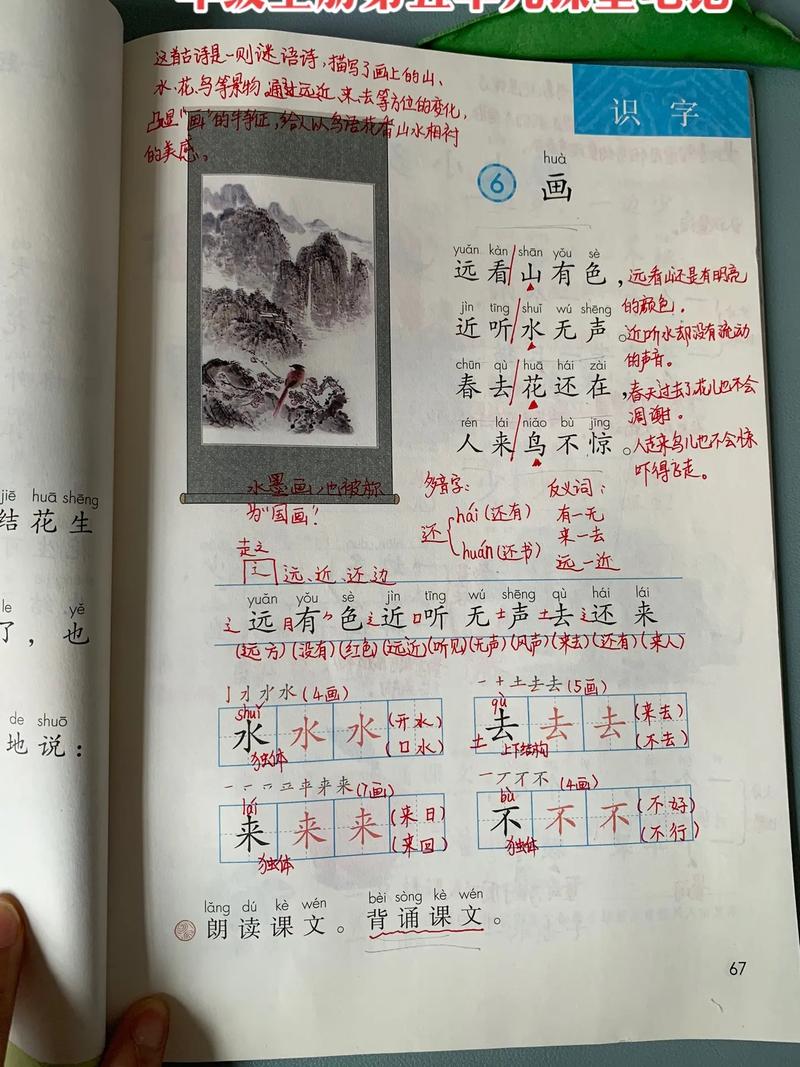 一年级上册第五单元课堂笔记
这首古诗是一则谜语诗，描写了画上的山、
水、花、鸟等景物，通过远近、来、去等方位的变化，
凸显"画"的特征，给人以鸟语花香山水相衬
的美感。
识字
huà
6 画
yuǎn kàn shān yǒu sè
远看/山有色，
远看山还是有明亮
的颜色。
jìn tīng shuǐ wú shēng
近听/水无声。
近听水却没有流动
的声音。
chūn qù huā hái zài
春去/花还在，
春天过去了花儿也不会
凋谢。
rén lái niǎo bù jīng
人来/鸟不惊。
人走来鸟儿也不会惊
吓得飞走。
水墨画，也被称
为"国画"！
多音字：
还
hái (还有)
huán (还书)
反义词：
有—无
来—去
远—近
走之
辶 远、近、还 边
yuǎn yǒu sè jìn tīng wú shēng qù hái lái
辶远 月有 色 辶近 口听 无 士声 土去 还 来
(远方)(没有)(红色)(远近)(听见)(无声)(风声)(来去)(还有)(来人)
(4画)
shuǐ
水 水 水
(开水)
(口水)
独体
(5画)
qù
去 去 去
(来去)
(不去)
土
上下结构
(7画)
lái
来 来 来
(来日)
(来回)
独体
(4画)
bù
不 不 不
(不好)
(不行)
独体
lǎng dú kè wén
朗读课文。
bèi sòng kè wén
背诵课文。
67
jiē huā shēng
结花生
le yě
了，也
de shuō
地说：